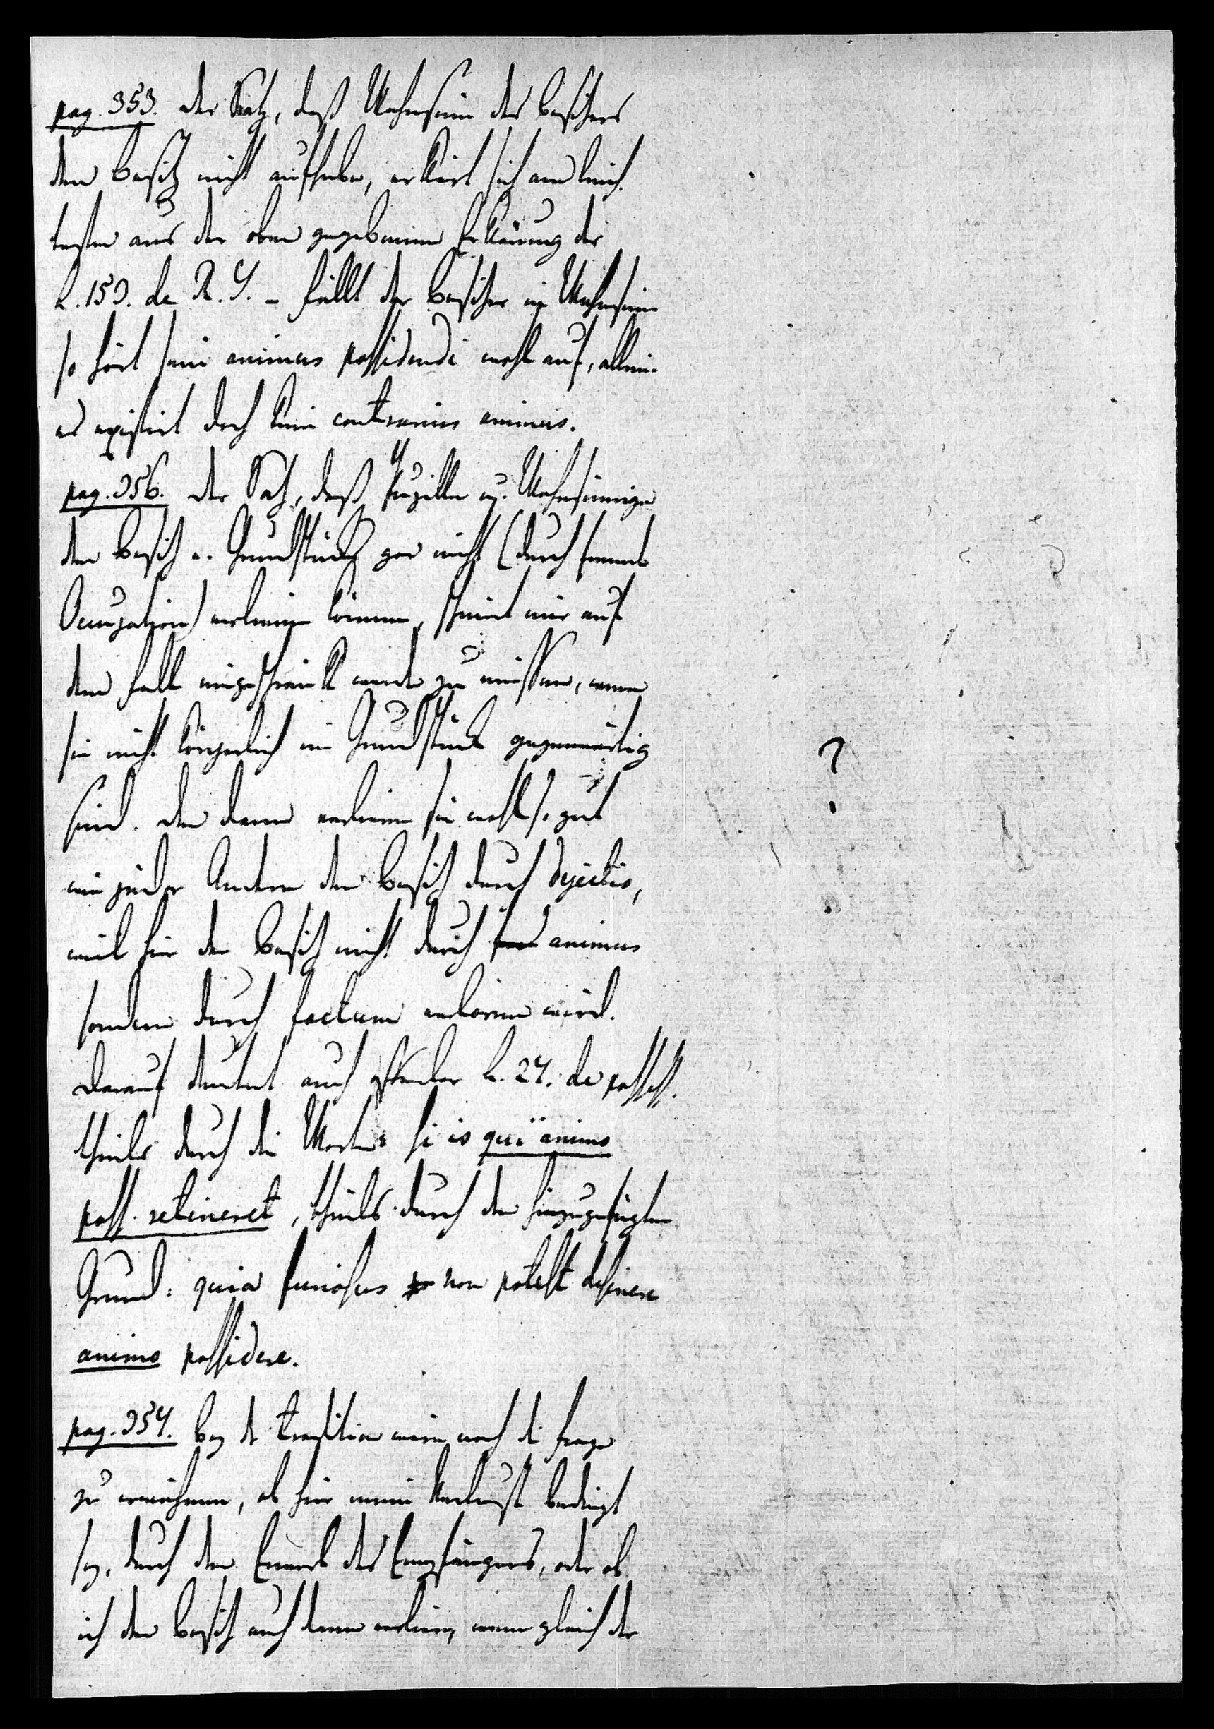 pag. 353. Der Satz, daß Wahnsinn des Besitzers
den Besitz nicht aufhebe, erklärt sich am leich-
testen aus der oben gegebenen Erklärung der
L. 153. de R. J. - fällt der Besitzer in Wahnsinn
so hört sein animus possidendi wohl auf, allein
es existirt doch kein contrarius animus.
pag. 356. Der Satz, daß Pupillen u. Wahnsinnige
den Besitz e. Grundstücks gar nicht (durch fremde
Occupation) verlieren können, scheint mir auf
den Fall eingeschränkt werden zu müssen, wenn
sie nicht körperlich im Grundstück gegenwärtig
?
sind. Den dann verlieren sie wohl so gut
wie jeder Andere den Besitz durch dejectio,
weil hier der Besitz nicht durch animus
sondern durch factum verloren wird.
Darauf deutet auch L. 27. de possess.
theils durch die Worte: si is qui animo
poss. retineret, theils durch den hinzugefügten
Grund: quia furiosus non potest desinere
animo possidere.
pag. 354. Bey der Tradition wäre noch die Frage
zu erwähnen, ob hier mein Verlust bedingt
sey, durch den Erwerb des Empfängers, oder ob
ich den Besitz auch dann verliere, wenn gleich der